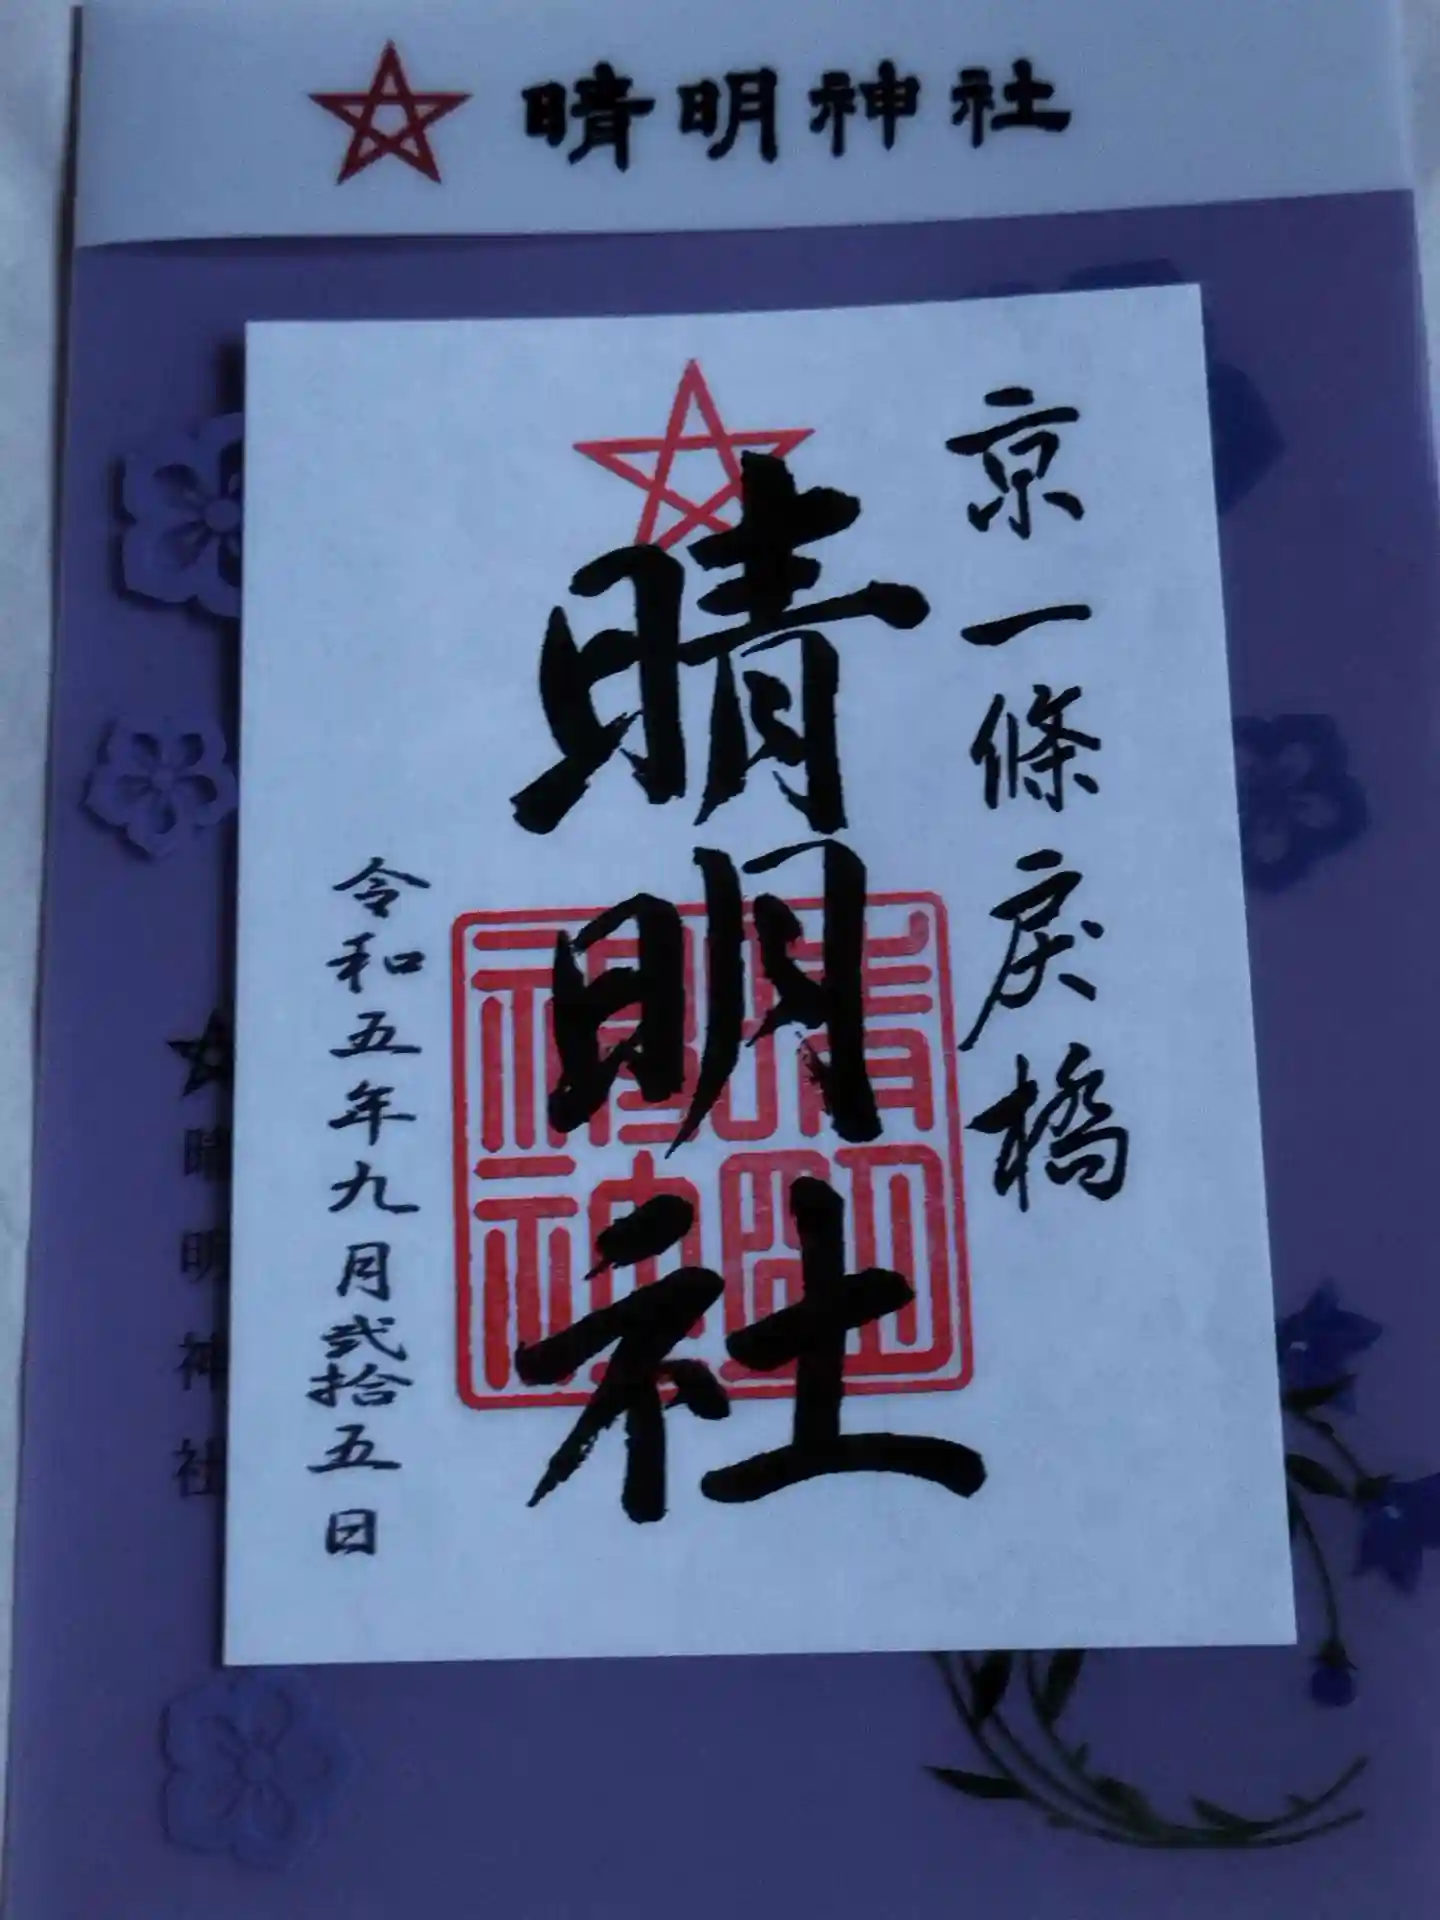 晴明神社
京一條戻橋
晴明社
令和五年九月弐拾五日
晴明神社
晴明神社